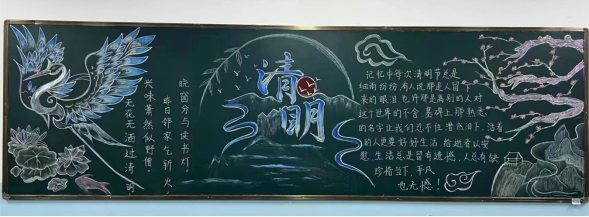 无花无酒过清明,
兴味萧然似野僧。
昨日邻家乞新火,
晓窗分与读书灯。
清明
记忆中每次清明节总是
细雨纷纷,有人说那是人留下
来的眼泪,也许是离别的人对
这个世界的不舍,墓碑上那熟悉
的名字让我们忍不住潸然泪下,活着
的人更要好好生活,给逝者以安
慰,生活总是留有遗憾,人总有缺
珍惜当下,平凡
也无憾!